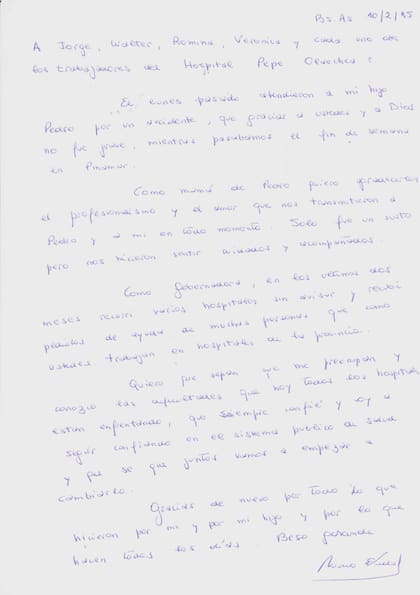 Bs. As 10/2/85
A Jorge, Walter, Romina, Veronica y cada uno de
los trabajadores del Hospital Pepe Olavarria:
El lunes pasado atendieron a mi hijo
Pedro por un accidente, que gracias a ustedes y a Dios
no fue grave, mientras pasabamos el fin de semana
en Pinamar.
Como mamá de Pedro quiero agradecerles
el profesionalismo y el amor que nos transmitieron a
Pedro y a mi en todo momento. Solo fue un susto
pero nos hicieron sentir cuidados y acompañados.
Como Gobernadora, en los ultimos dos
meses recorri varios hospitales sin avisar y recibi
pedidos de ayuda de muchas personas que como
ustedes trabajan en hospitales de la provincia.
Quiero que sepan que me preocupan y
conozco las dificultades que hoy todos los hospitales
estan enfrentando, que siempre confié y voy a
seguir confiando en el sistema publico de salud
y que se que juntos vamos a empezar a
cambiarlo.
Gracias de nuevo por todo lo que
hicieron por mi y por mi hijo y por lo que
hacen todos los dias. Beso grande